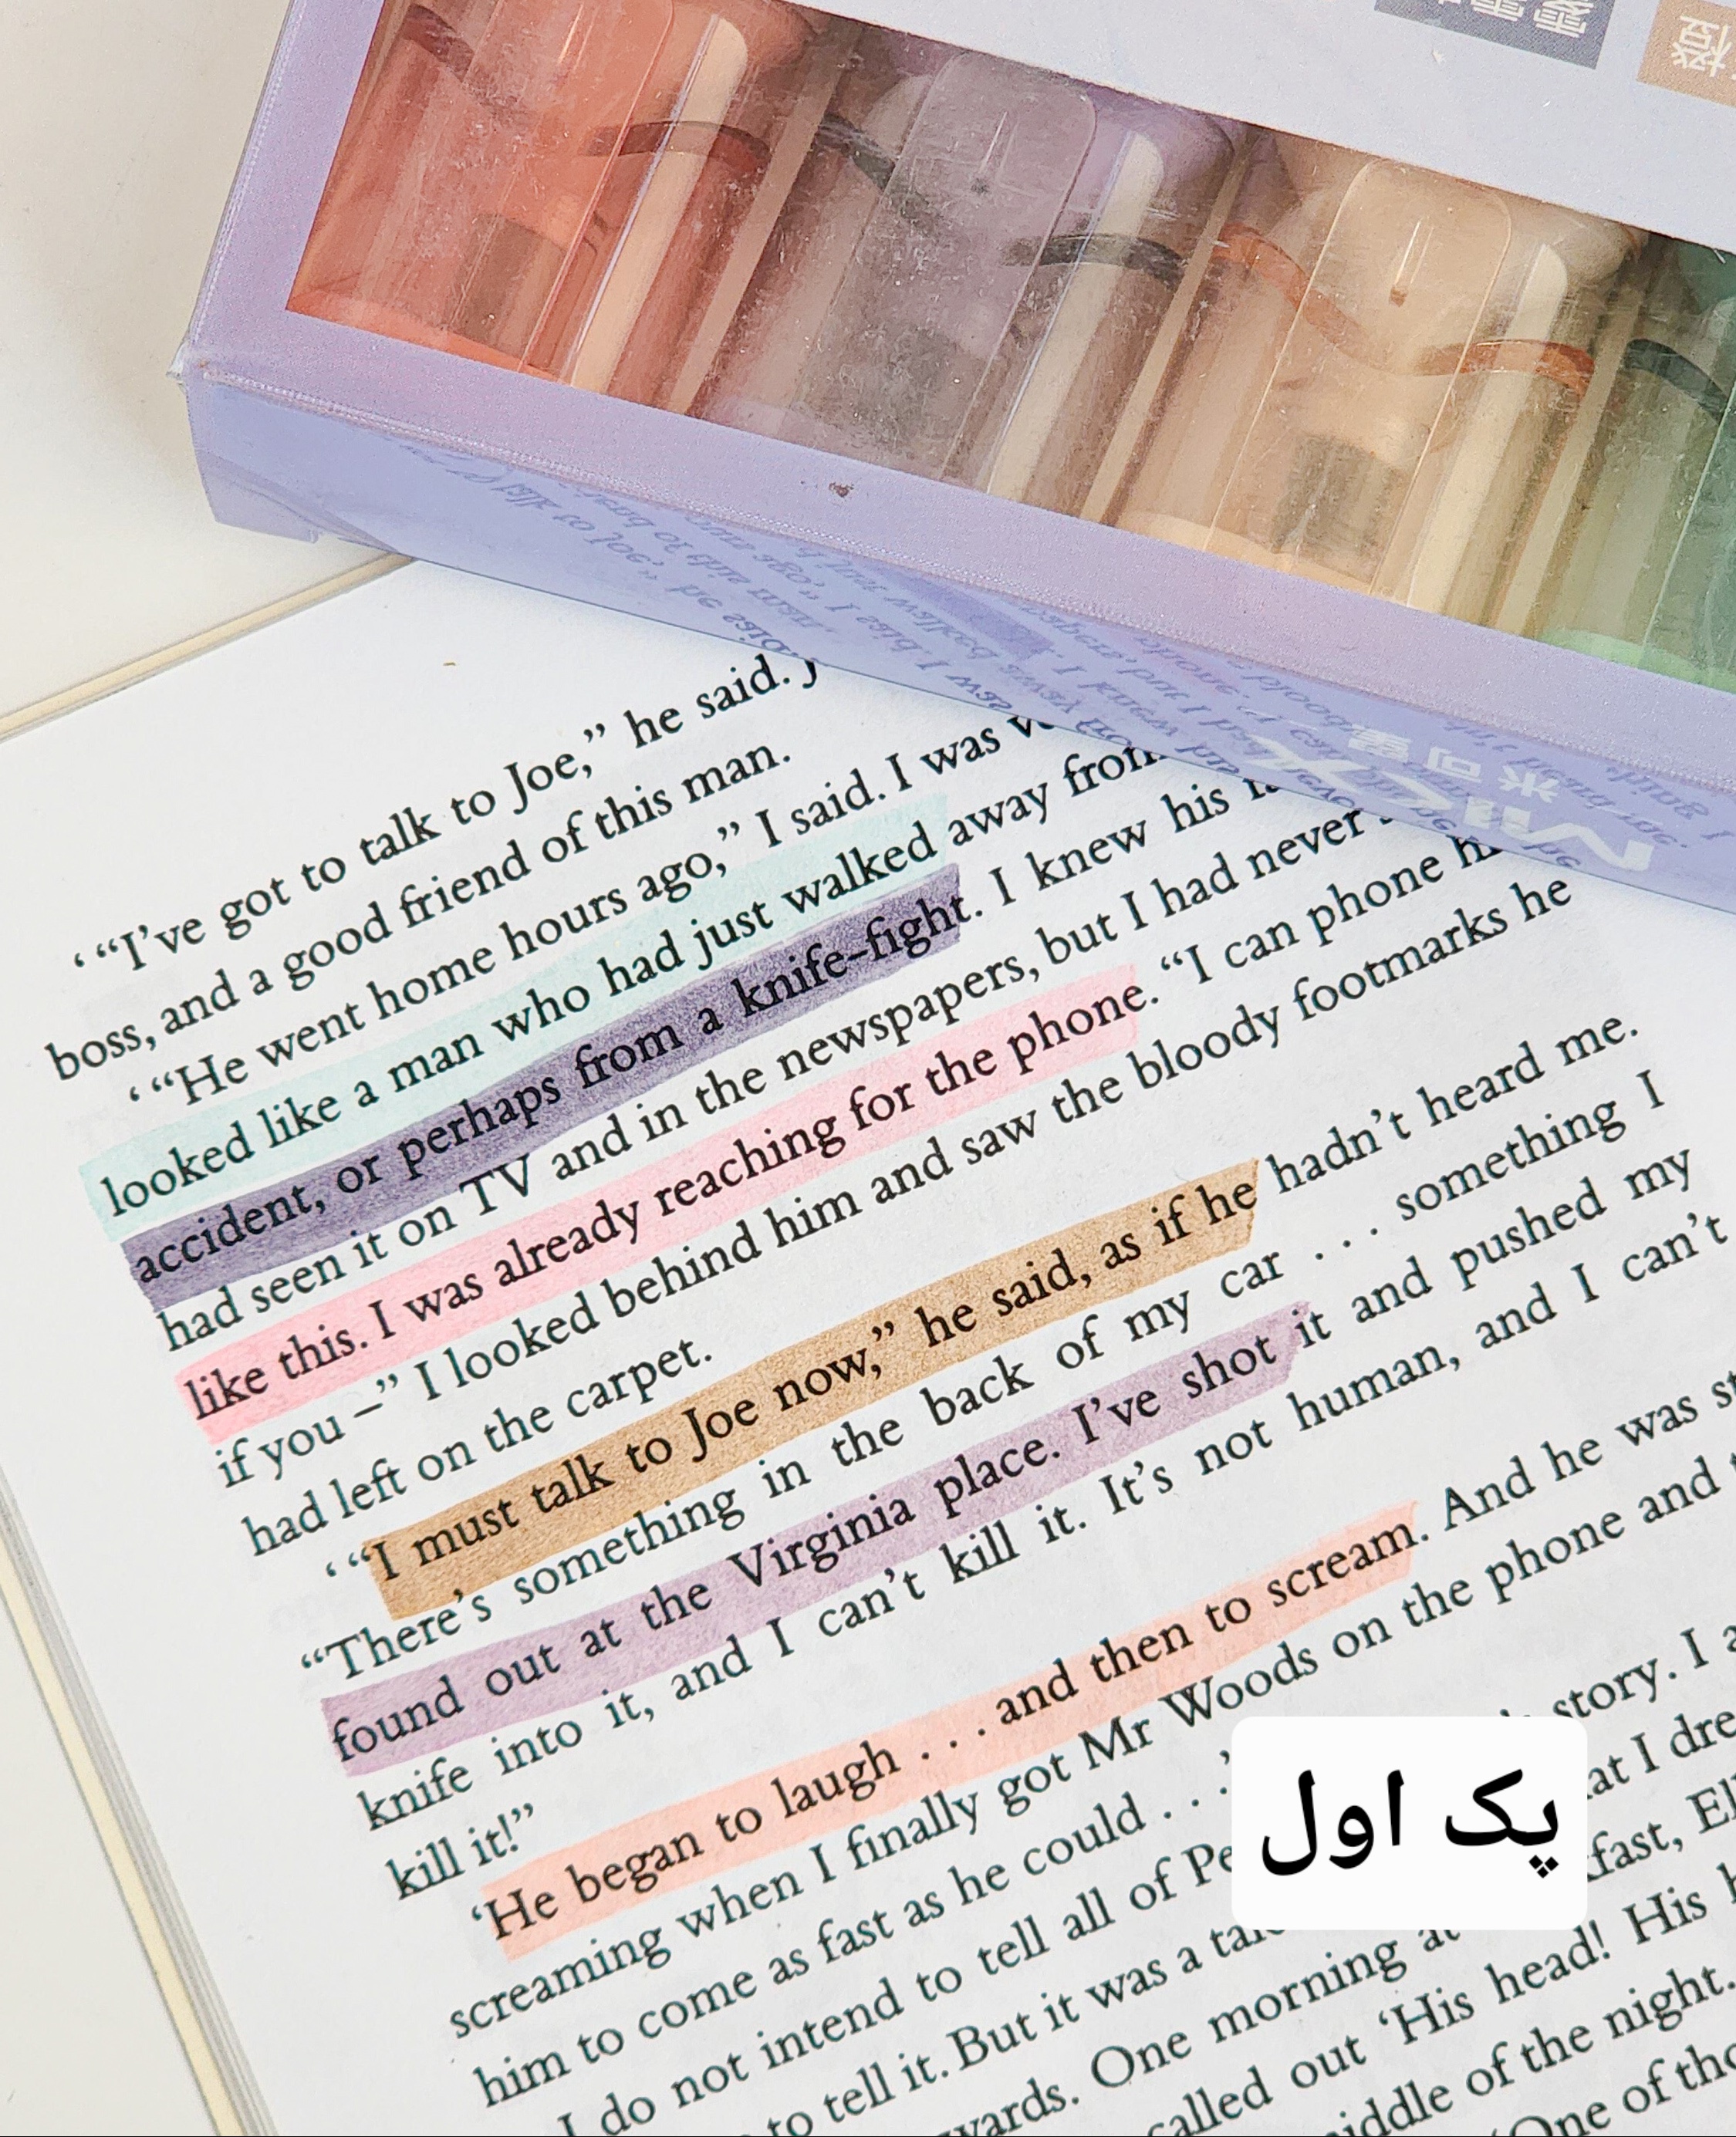 ‘ “I’ve got to talk to Joe,” he said.
boss, and a good friend of this man.
‘ “He went home hours ago,” I said. I was
looked like a man who had just walked away from
accident, or perhaps from a knife-fight. I knew his
had seen it on TV and in the newspapers, but I had never
like this. I was already reaching for the phone. “I can phone
if you –” I looked behind him and saw the bloody footmarks he
had left on the carpet.
‘ “I must talk to Joe now,” he said, as if he hadn’t heard me.
“There’s something in the back of my car . . . something I
found out at the Virginia place. I’ve shot it and pushed my
knife into it, and I can’t kill it. It’s not human, and I can’t
kill it!”
‘He began to laugh . . . and then to scream. And he was
screaming when I finally got Mr Woods on the phone and
him to come as fast as he could . . .’
I do not intend to tell all of story. I
to tell it. But it was a that I
One morning at fast,
called out ‘His head! His
middle of the night.
‘One of
پک اول